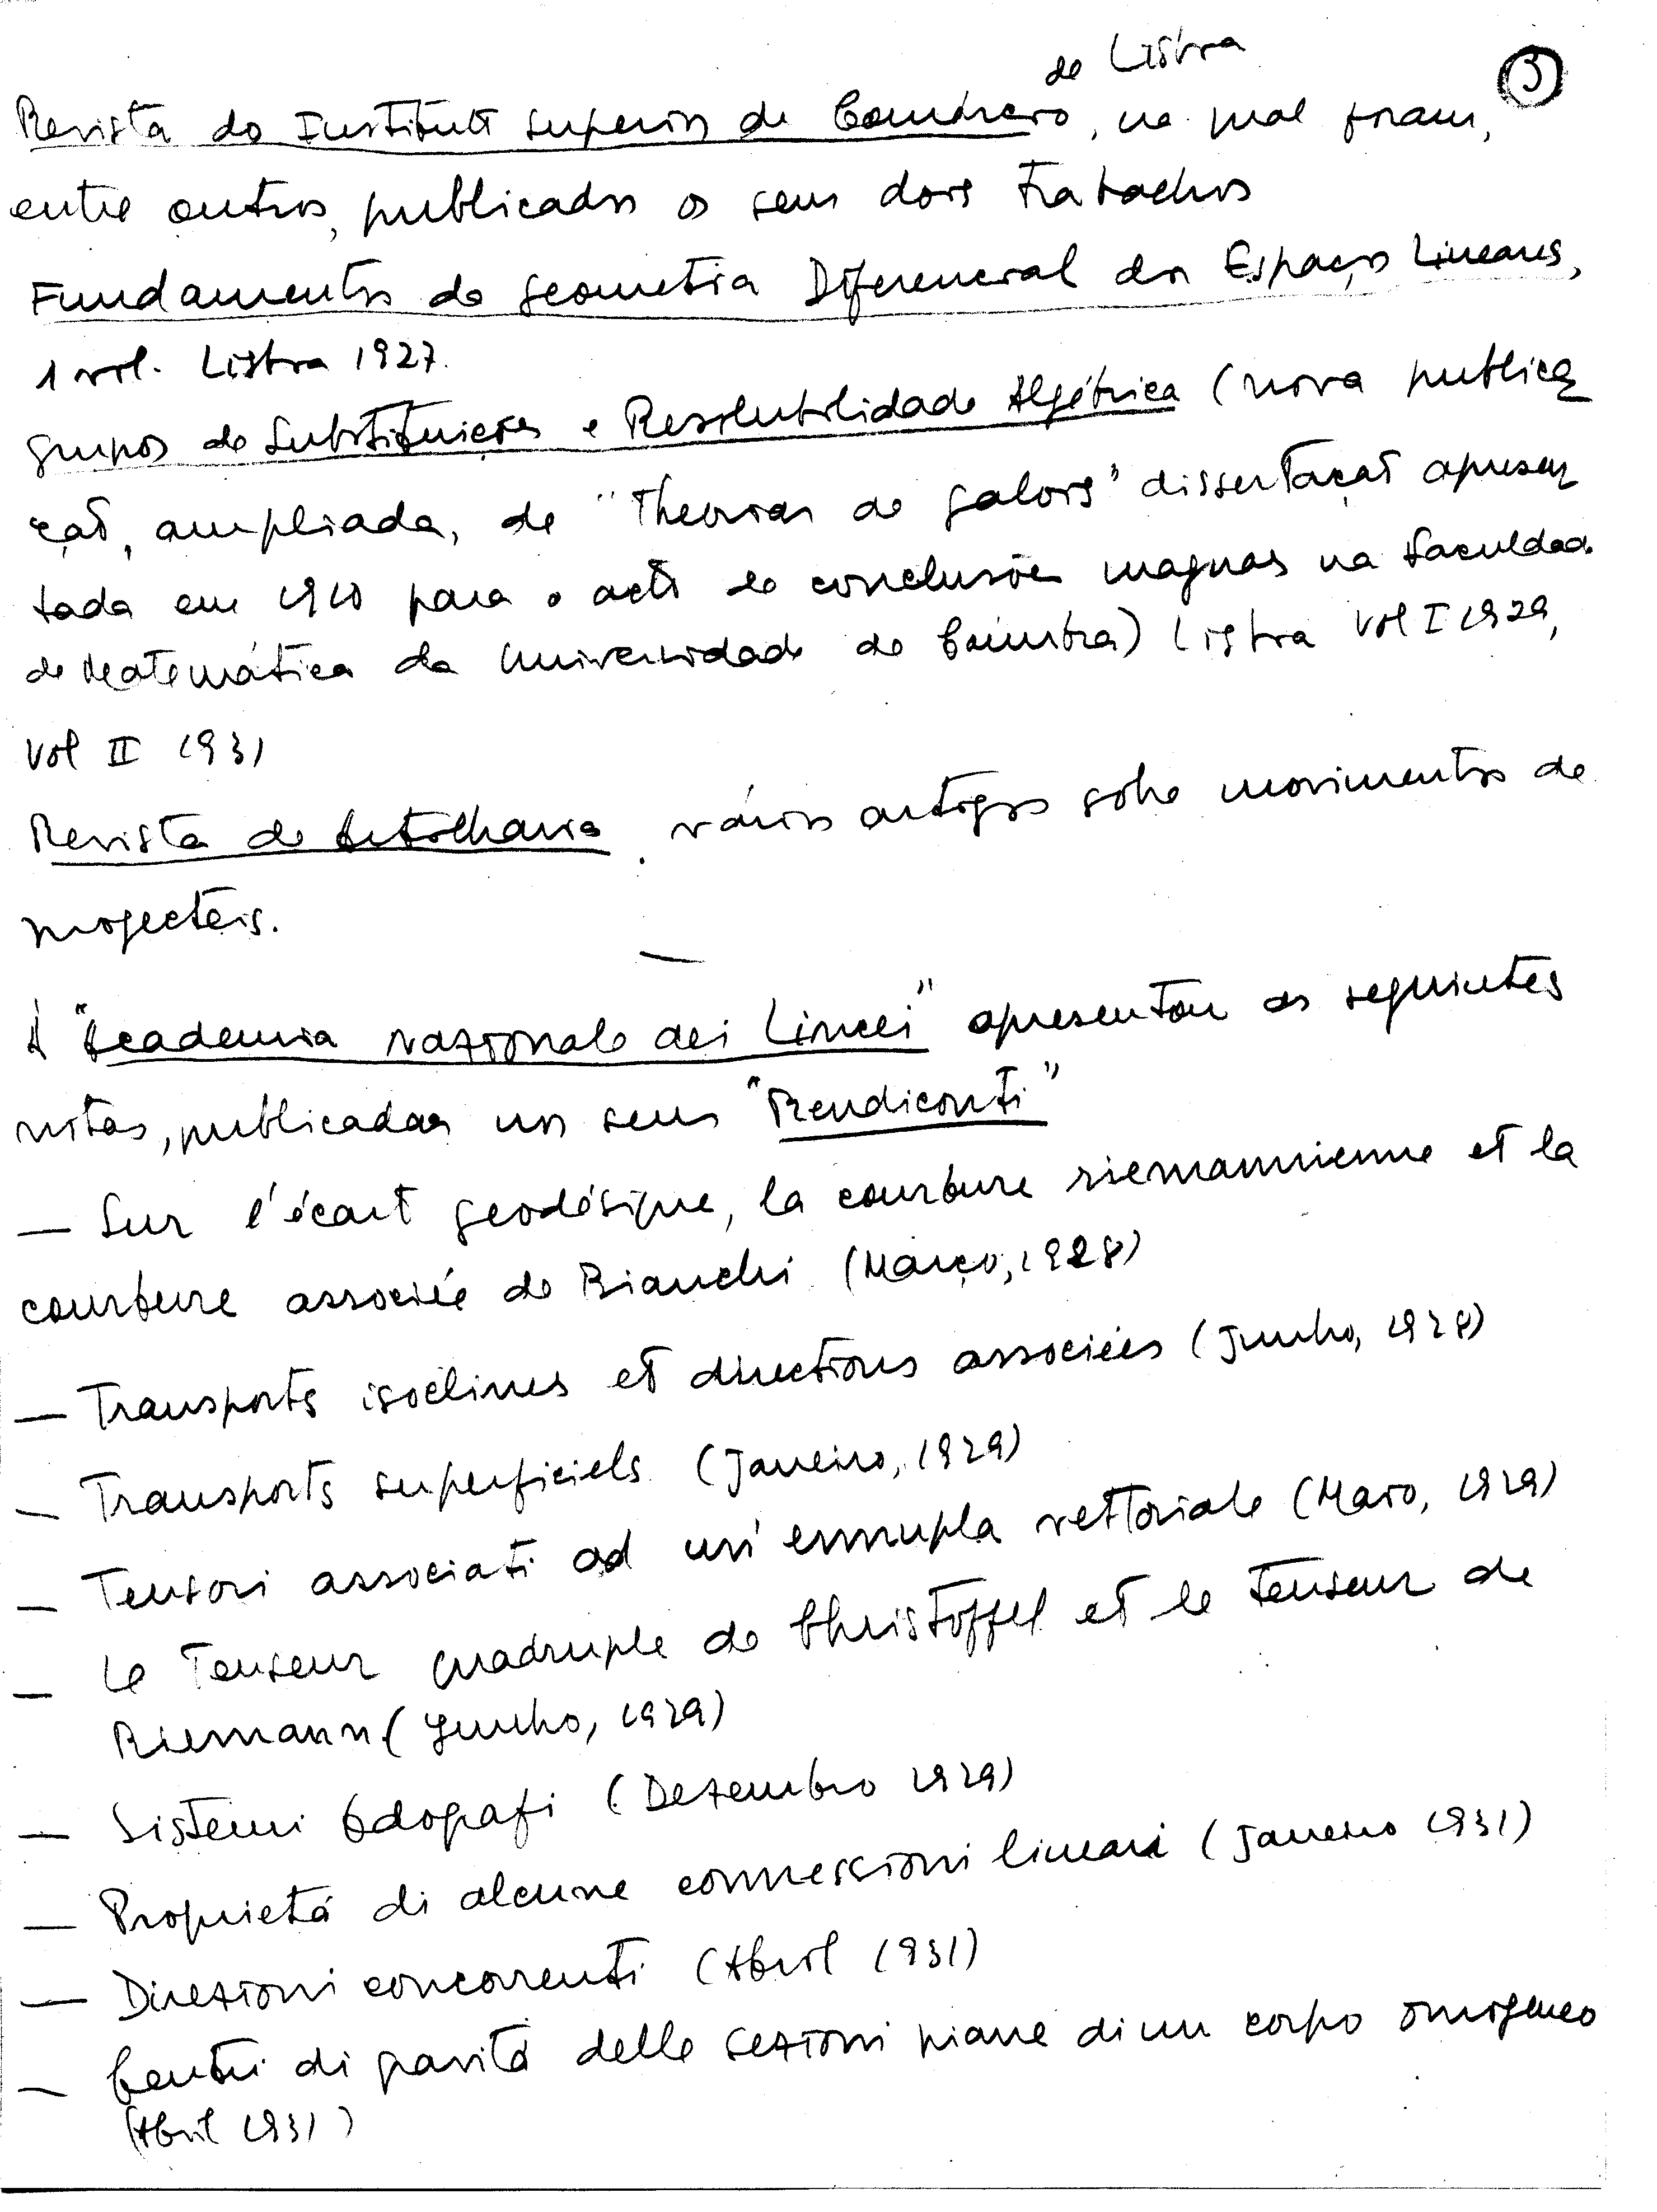 de Lisboa
③
Revista do Instituto Superior de Comércio, na qual foram,
entre outros, publicados os seus dois trabalhos
Fundamentos da Geometria Diferencial dos Espaços Lineares,
1 vol. Lisboa 1927.
Grupos de Substituições e Resolubilidade Algébrica (nova publica
ção, ampliada, de "Theorias de Galois" dissertação apresen
tada em 1910 para o acto de conclusões magnas na Faculdade
de Matemática da Universidade de Coimbra) Lisboa Vol I 1929,
Vol II 1931
Revista de Artilharia. vários artigos sobre movimentos de
projecteis.
—
À "Academia Nazionale dei Lincei" apresentou as seguintes
notas, publicadas nos seus "Rendiconti"
— Sur l'écart geodésique, la courbure riemannienne et la
courbure associée de Bianchi (Março, 1928)
— Transports isoclines et directions associées (Junho, 1928)
— Transports superficiels (Janeiro, 1929)
— Tensori associati ad un'ennupla vettoriale (Maio, 1929)
— Le Tenseur quadruple de Christoffel et le tenseur de
Riemann (Junho, 1929)
— Sistemi Odografi (Dezembro 1929)
— Proprietá di alcune connessioni lineari (Janeiro 1931)
— Direzioni concorrenti (Abril 1931)
— Centri di gravitá delle sezioni piane di un corpo omogeneo
(Abril 1931)